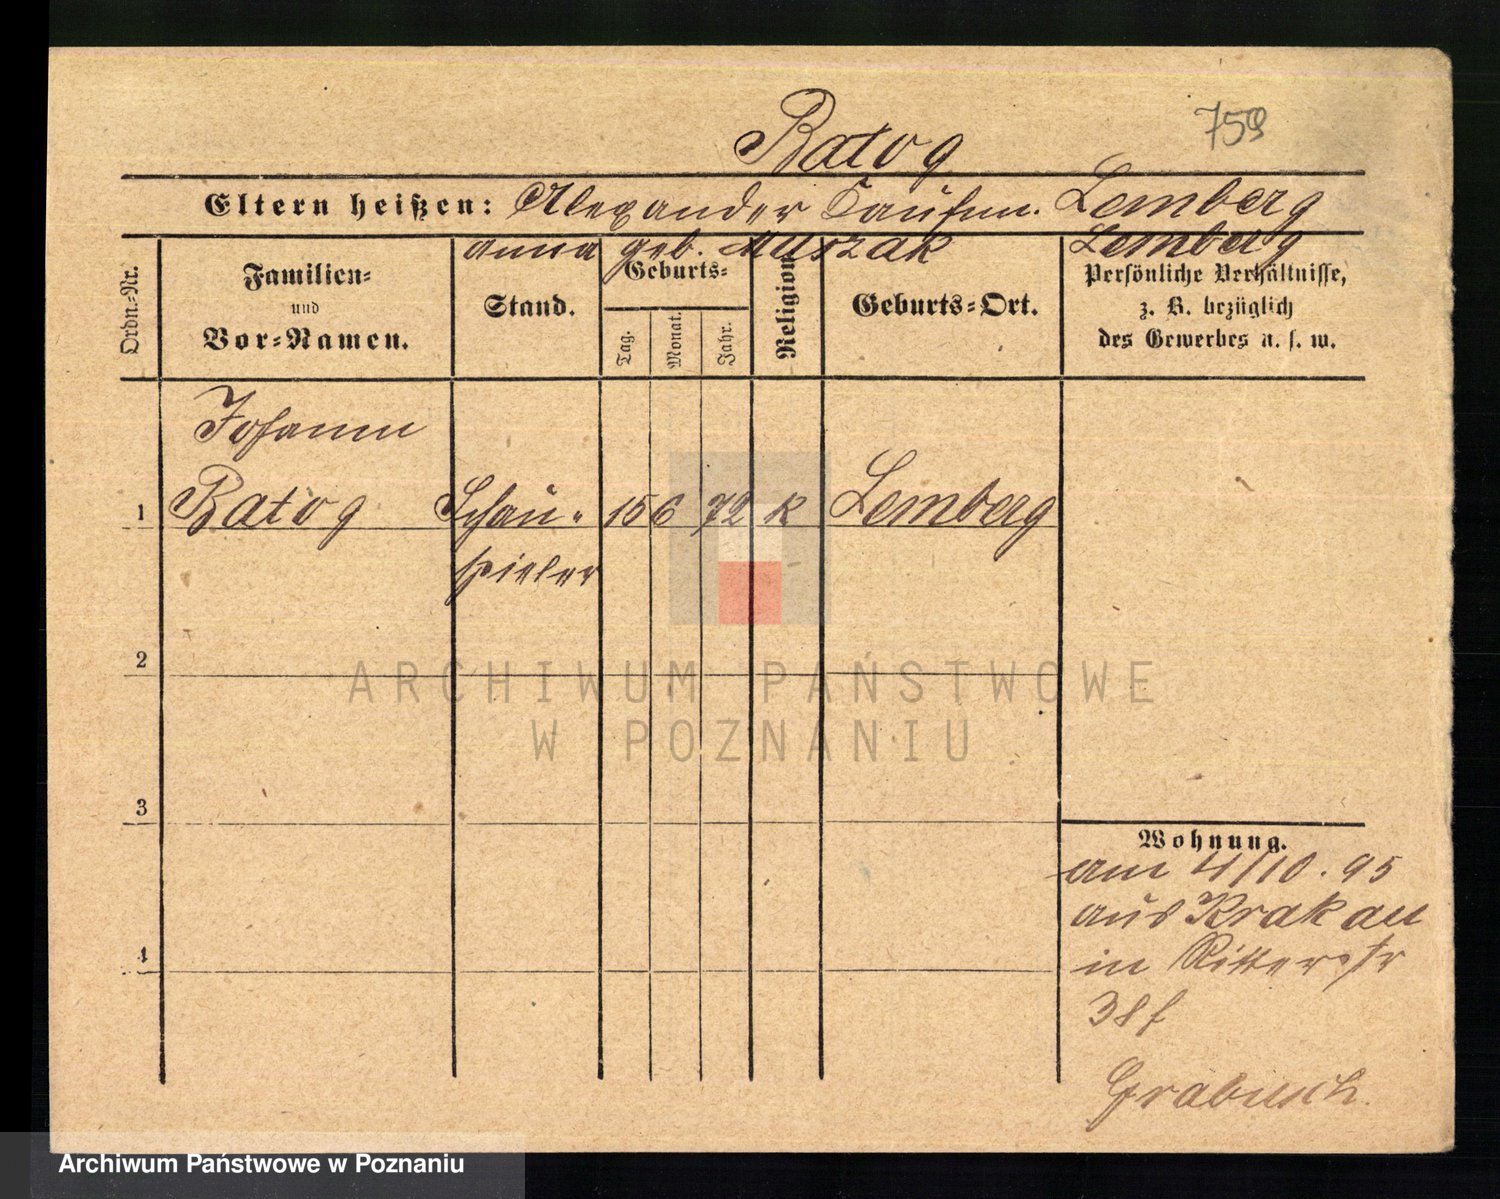 759
Batog
Eltern heißen: Alexander Kaufm. Lemberg
Anna geb. Muszak Lemberg
Ordn.-Nr.
Familien-
und
Vor-Namen.
Stand.
Geburts-
Tag.
Monat.
Jahr.
Religion
Geburts-Ort.
Persönliche Verhältnisse,
z. B. bezüglich
des Gewerbes u. s. w.
Johann
1 Batog Schau- 15 6 72 K Lemberg
spieler
2
3
4
Wohnung.
am 4/10. 95
aus Krakau
in Ritterstr
38 f
ARCHIWUM PAŃSTWOWE
W POZNANIU
Archiwum Państwowe w Poznaniu